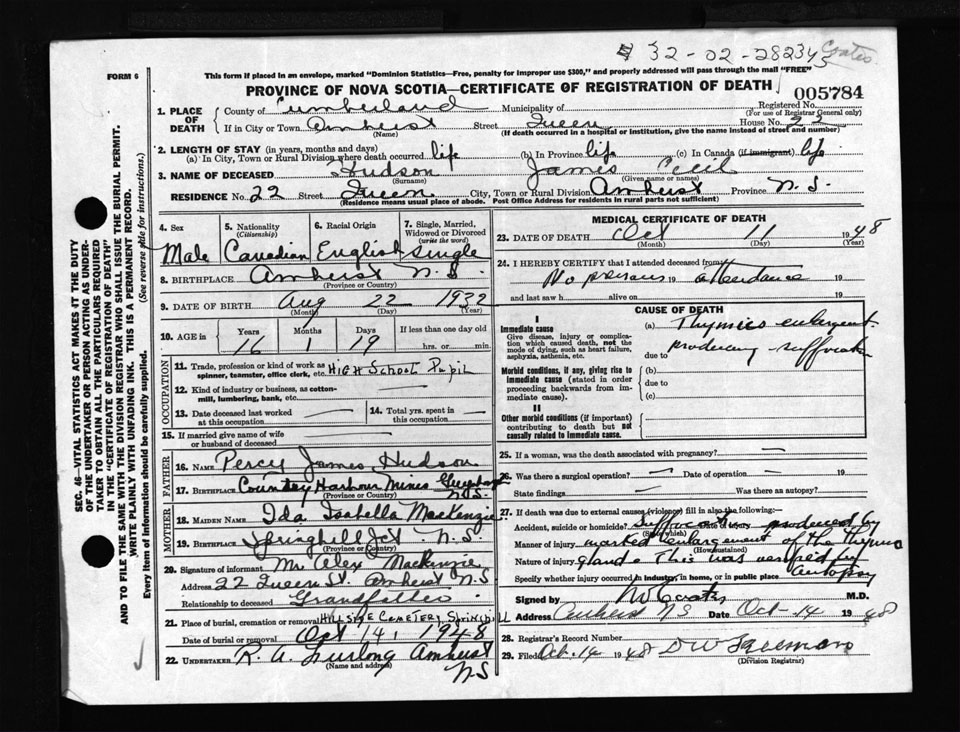 32-02-28234 Coates
FORM 6
This form if placed in an envelope, marked "Dominion Statistics—Free, penalty for improper use $300," and properly addressed will pass through the mail "FREE"
PROVINCE OF NOVA SCOTIA—CERTIFICATE OF REGISTRATION OF DEATH
005784
1. PLACE OF DEATH
County of Cumberland Municipality of Registered No.
(For use of Registrar General only)
If in City or Town Amherst Street Queen House No. 22
(Name) (If death occurred in a hospital or institution, give the name instead of street and number)
2. LENGTH OF STAY (in years, months and days)
(a) In City, Town or Rural Division where death occurred life (b) In Province life (c) In Canada (if immigrant) life
3. NAME OF DECEASED Hudson James Cecil
(Surname) (Given name or names)
RESIDENCE No. 22 Street Queen City, Town or Rural Division Amherst Province N.S.
(Residence means usual place of abode. Post Office Address for residents in rural parts not sufficient)
4. Sex 5. Nationality (Citizenship) 6. Racial Origin 7. Single, Married, Widowed or Divorced (write the word)
Male Canadian English single
8. BIRTHPLACE Amherst N.S.
(Province or Country)
9. DATE OF BIRTH Aug 22 1932
(Month) (Day) (Year)
10. AGE in Years Months Days If less than one day old
16 1 19 hrs. or min.
OCCUPATION
11. Trade, profession or kind of work as spinner, teamster, office clerk, etc. HIGH SCHOOL Pupil
12. Kind of industry or business, as cotton-mill, lumbering, bank, etc.
13. Date deceased last worked at this occupation
14. Total yrs. spent in this occupation
15. If married give name of wife or husband of deceased
FATHER
16. NAME Percy James Hudson
17. BIRTHPLACE Country Harbour Mines Guysboro N.S.
(Province or Country)
MOTHER
18. MAIDEN NAME Ida Isabella MacKenzie
19. BIRTHPLACE Springhill Jct. N.S.
(Province or Country)
20. Signature of informant Mr Alex MacKenzie
Address 22 Queen St. Amherst N.S
Relationship to deceased Grandfather
21. Place of burial, cremation or removal HILLSIDE CEMETERY Springhill
Date of burial or removal Oct 14, 1948
22. UNDERTAKER R. A. Furlong Amherst N.S
(Name and address)
MEDICAL CERTIFICATE OF DEATH
23. DATE OF DEATH Oct 11 1948
(Month) (Day) (Year)
24. I HEREBY CERTIFY that I attended deceased from
No 19 attendance 19
and last saw h alive on 19
CAUSE OF DEATH
I
Immediate cause
Give disease, injury or complication which caused death, not the mode of dying, such as heart failure, asphyxia, asthenia, etc.
(a) Thymics enlargent
due to producing suffocation
Morbid conditions, if any, giving rise to immediate cause (stated in order proceeding backwards from immediate cause).
(b)
due to
(c)
II
Other morbid conditions (if important) contributing to death but not causally related to immediate cause.
25. If a woman, was the death associated with pregnancy?
26. Was there a surgical operation? Date of operation 19
State findings Was there an autopsy?
27. If death was due to external causes (violence) fill in also the following:-
Accident, suicide or homicide? Suffocation produced by
(State which)
Manner of injury marked enlargement of the Thymus
(How sustained)
Nature of injury gland. This was verified by
Specify whether injury occurred in industry, in home, or in public place autopsy
Signed by M.D.
Address Amherst N S Date Oct-14 1948
28. Registrar's Record Number
29. Filed Oct-14 1948 D W
(Division Registrar)
SEC. 46—VITAL STATISTICS ACT MAKES IT THE DUTY
OF THE UNDERTAKER OR PERSON ACTING AS UNDER-
TAKER TO OBTAIN ALL THE PARTICULARS REQUIRED
IN THE "CERTIFICATE OF REGISTRATION OF DEATH"
AND TO FILE THE SAME WITH THE DIVISION REGISTRAR WHO SHALL ISSUE THE BURIAL PERMIT.
WRITE PLAINLY WITH UNFADING INK. THIS IS A PERMANENT RECORD.
Every item of information should be carefully supplied. (See reverse side for instructions.)